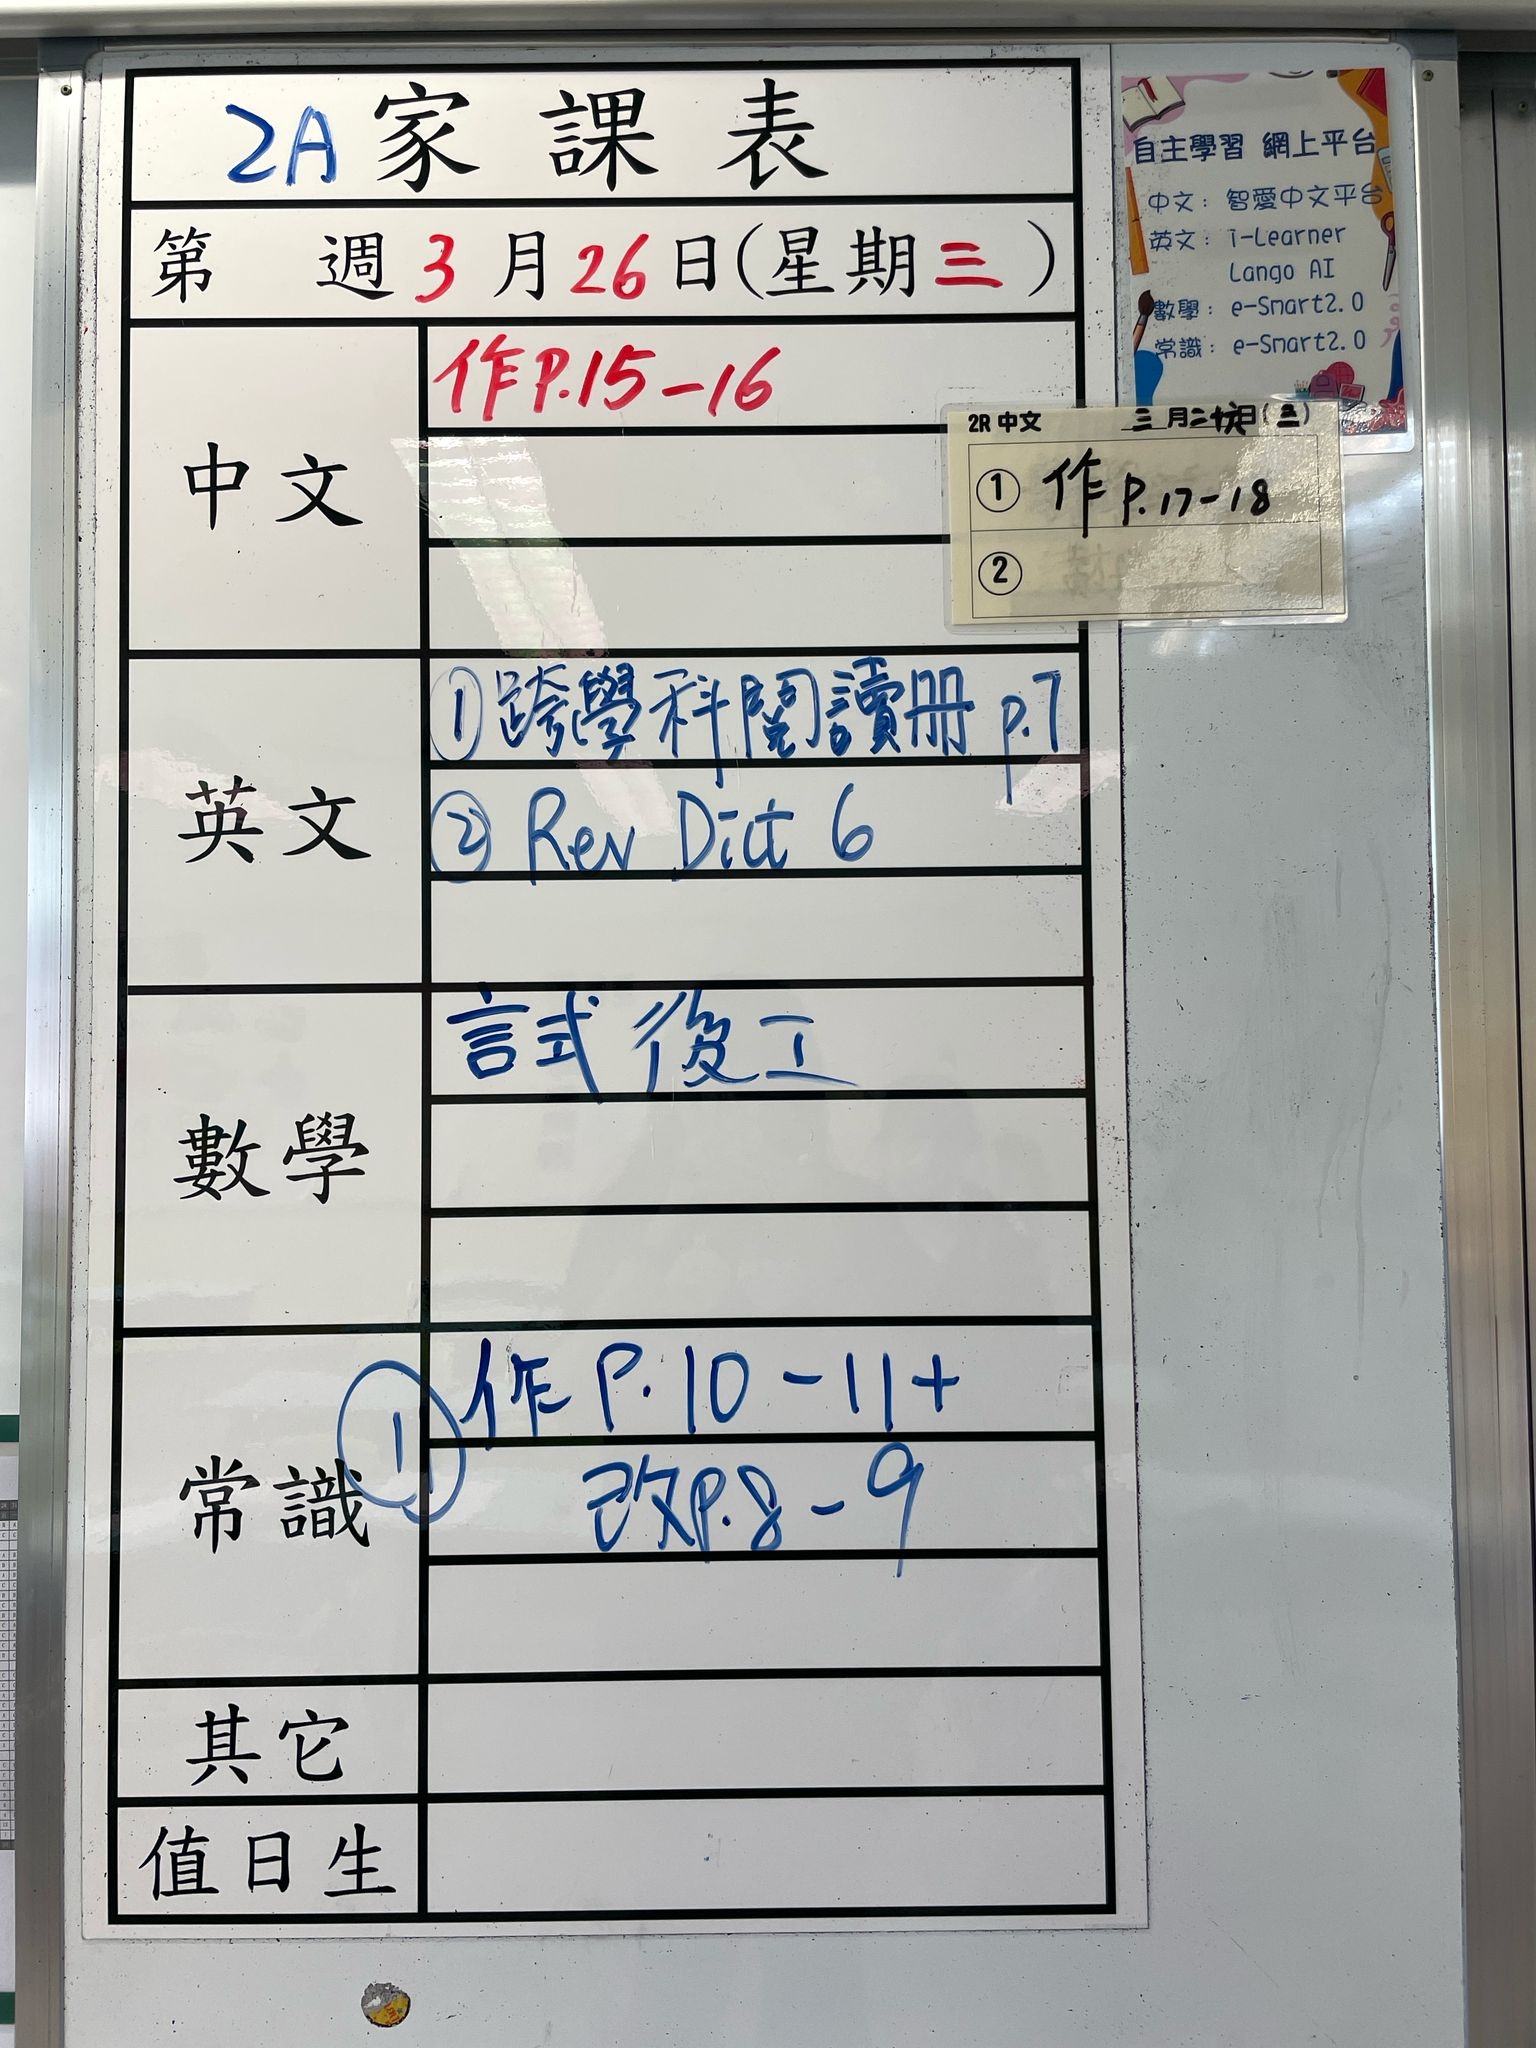 2A 家課表
第 週 3月26日(星期三)
中文
作P.15-16
英文
①跨學科閱讀冊 p.7
② Rev Dict 6
數學
試後工
常識
① 作P.10-11+
改P.8-9
其它
值日生
自主學習 網上平台
中文：智愛中文平台
英文：i-Learner
Lango AI
數學：e-Smart2.0
常識：e-Smart2.0
2R 中文 三月二十六日(三)
① 作P.17-18
②